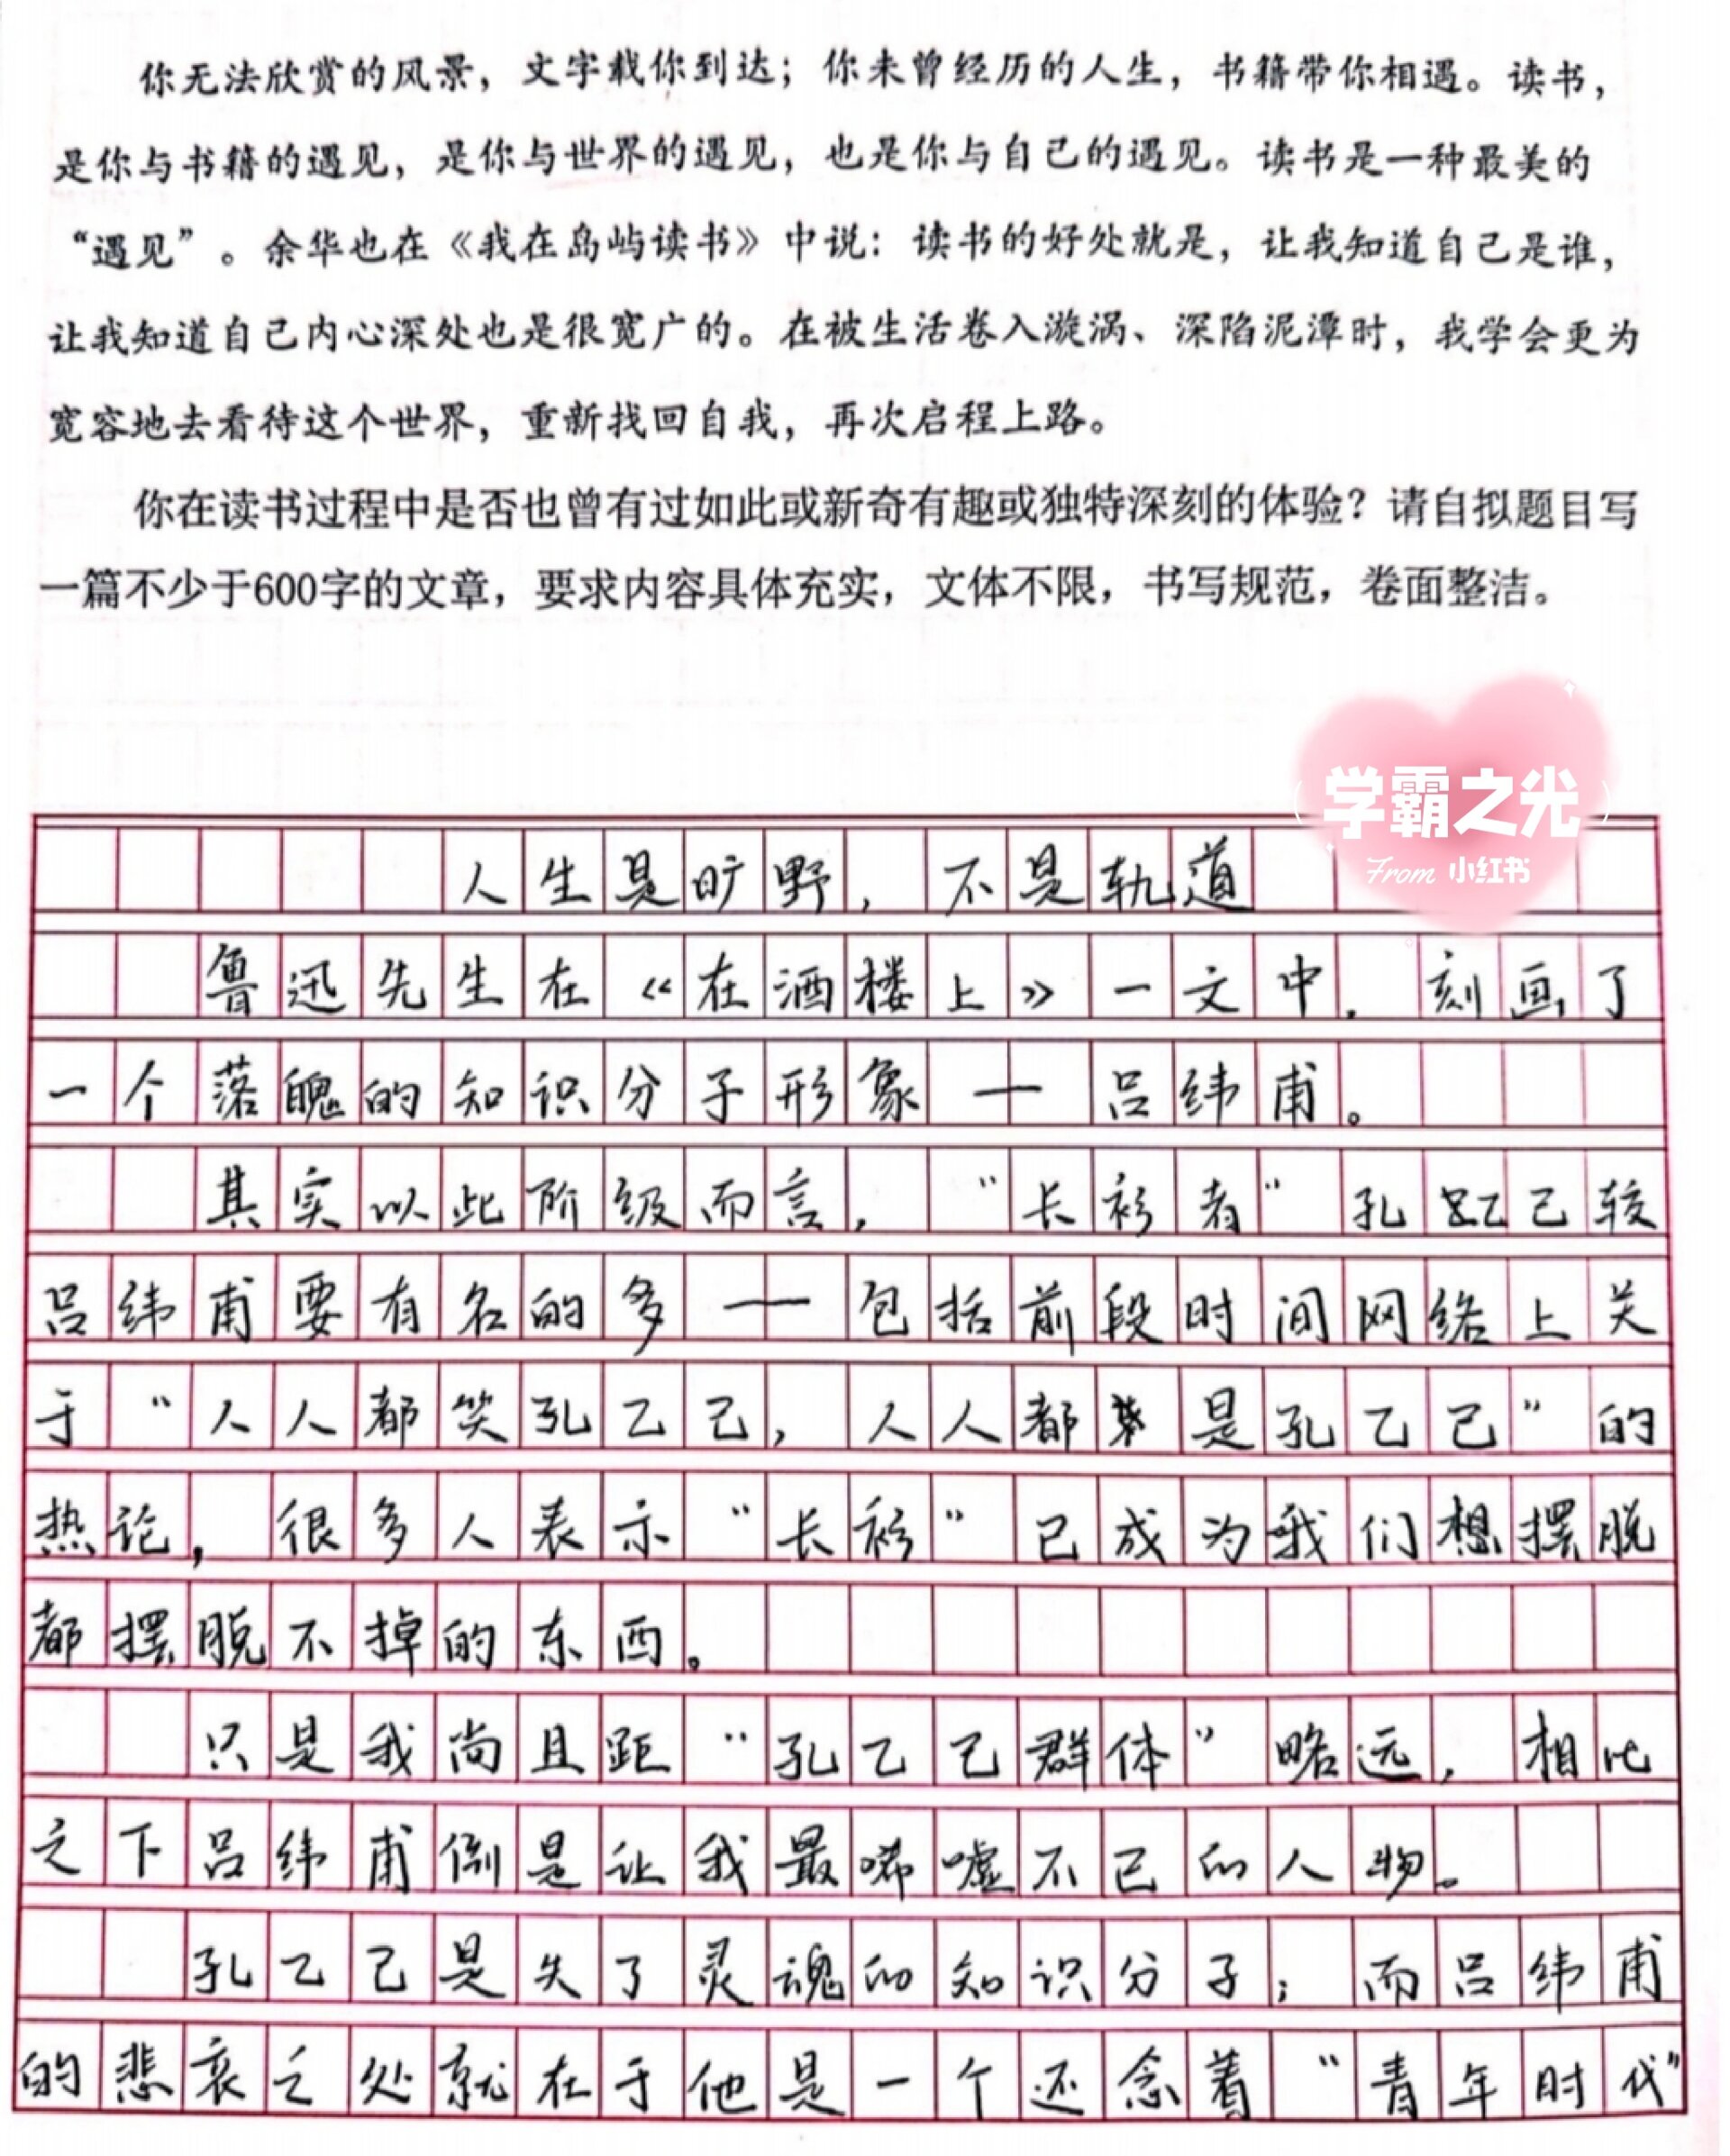 你无法欣赏的风景，文字载你到达；你未曾经历的人生，书籍带你相遇。读书，
是你与书籍的遇见，是你与世界的遇见，也是你与自己的遇见。读书是一种最美的
“遇见”。余华也在《我在岛屿读书》中说：读书的好处就是，让我知道自己是谁，
让我知道自己内心深处也是很宽广的。在被生活卷入漩涡、深陷泥潭时，我学会更为
宽容地去看待这个世界，重新找回自我，再次启程上路。
你在读书过程中是否也曾有过如此或新奇有趣或独特深刻的体验？请自拟题目写
一篇不少于600字的文章，要求内容具体充实，文体不限，书写规范，卷面整洁。
学霸之光
From 小红书
人生是旷野，不是轨道
鲁迅先生在《在酒楼上》一文中，刻画了
一个落魄的知识分子形象——吕纬甫。
其实以此阶级而言，“长衫者”孔乙己较
吕纬甫要有名的多——包括前段时间网络上关
于“人人都笑孔乙己，人人都是孔乙己”的
热论，很多人表示“长衫”已成为我们想摆脱
都摆脱不掉的东西。
只是我尚且距“孔乙己群体”略远，相比
之下吕纬甫倒是让我最唏嘘不已的人物。
孔乙己是失了灵魂的知识分子；而吕纬甫
的悲哀之处就在于他是一个还念着“青年时代”